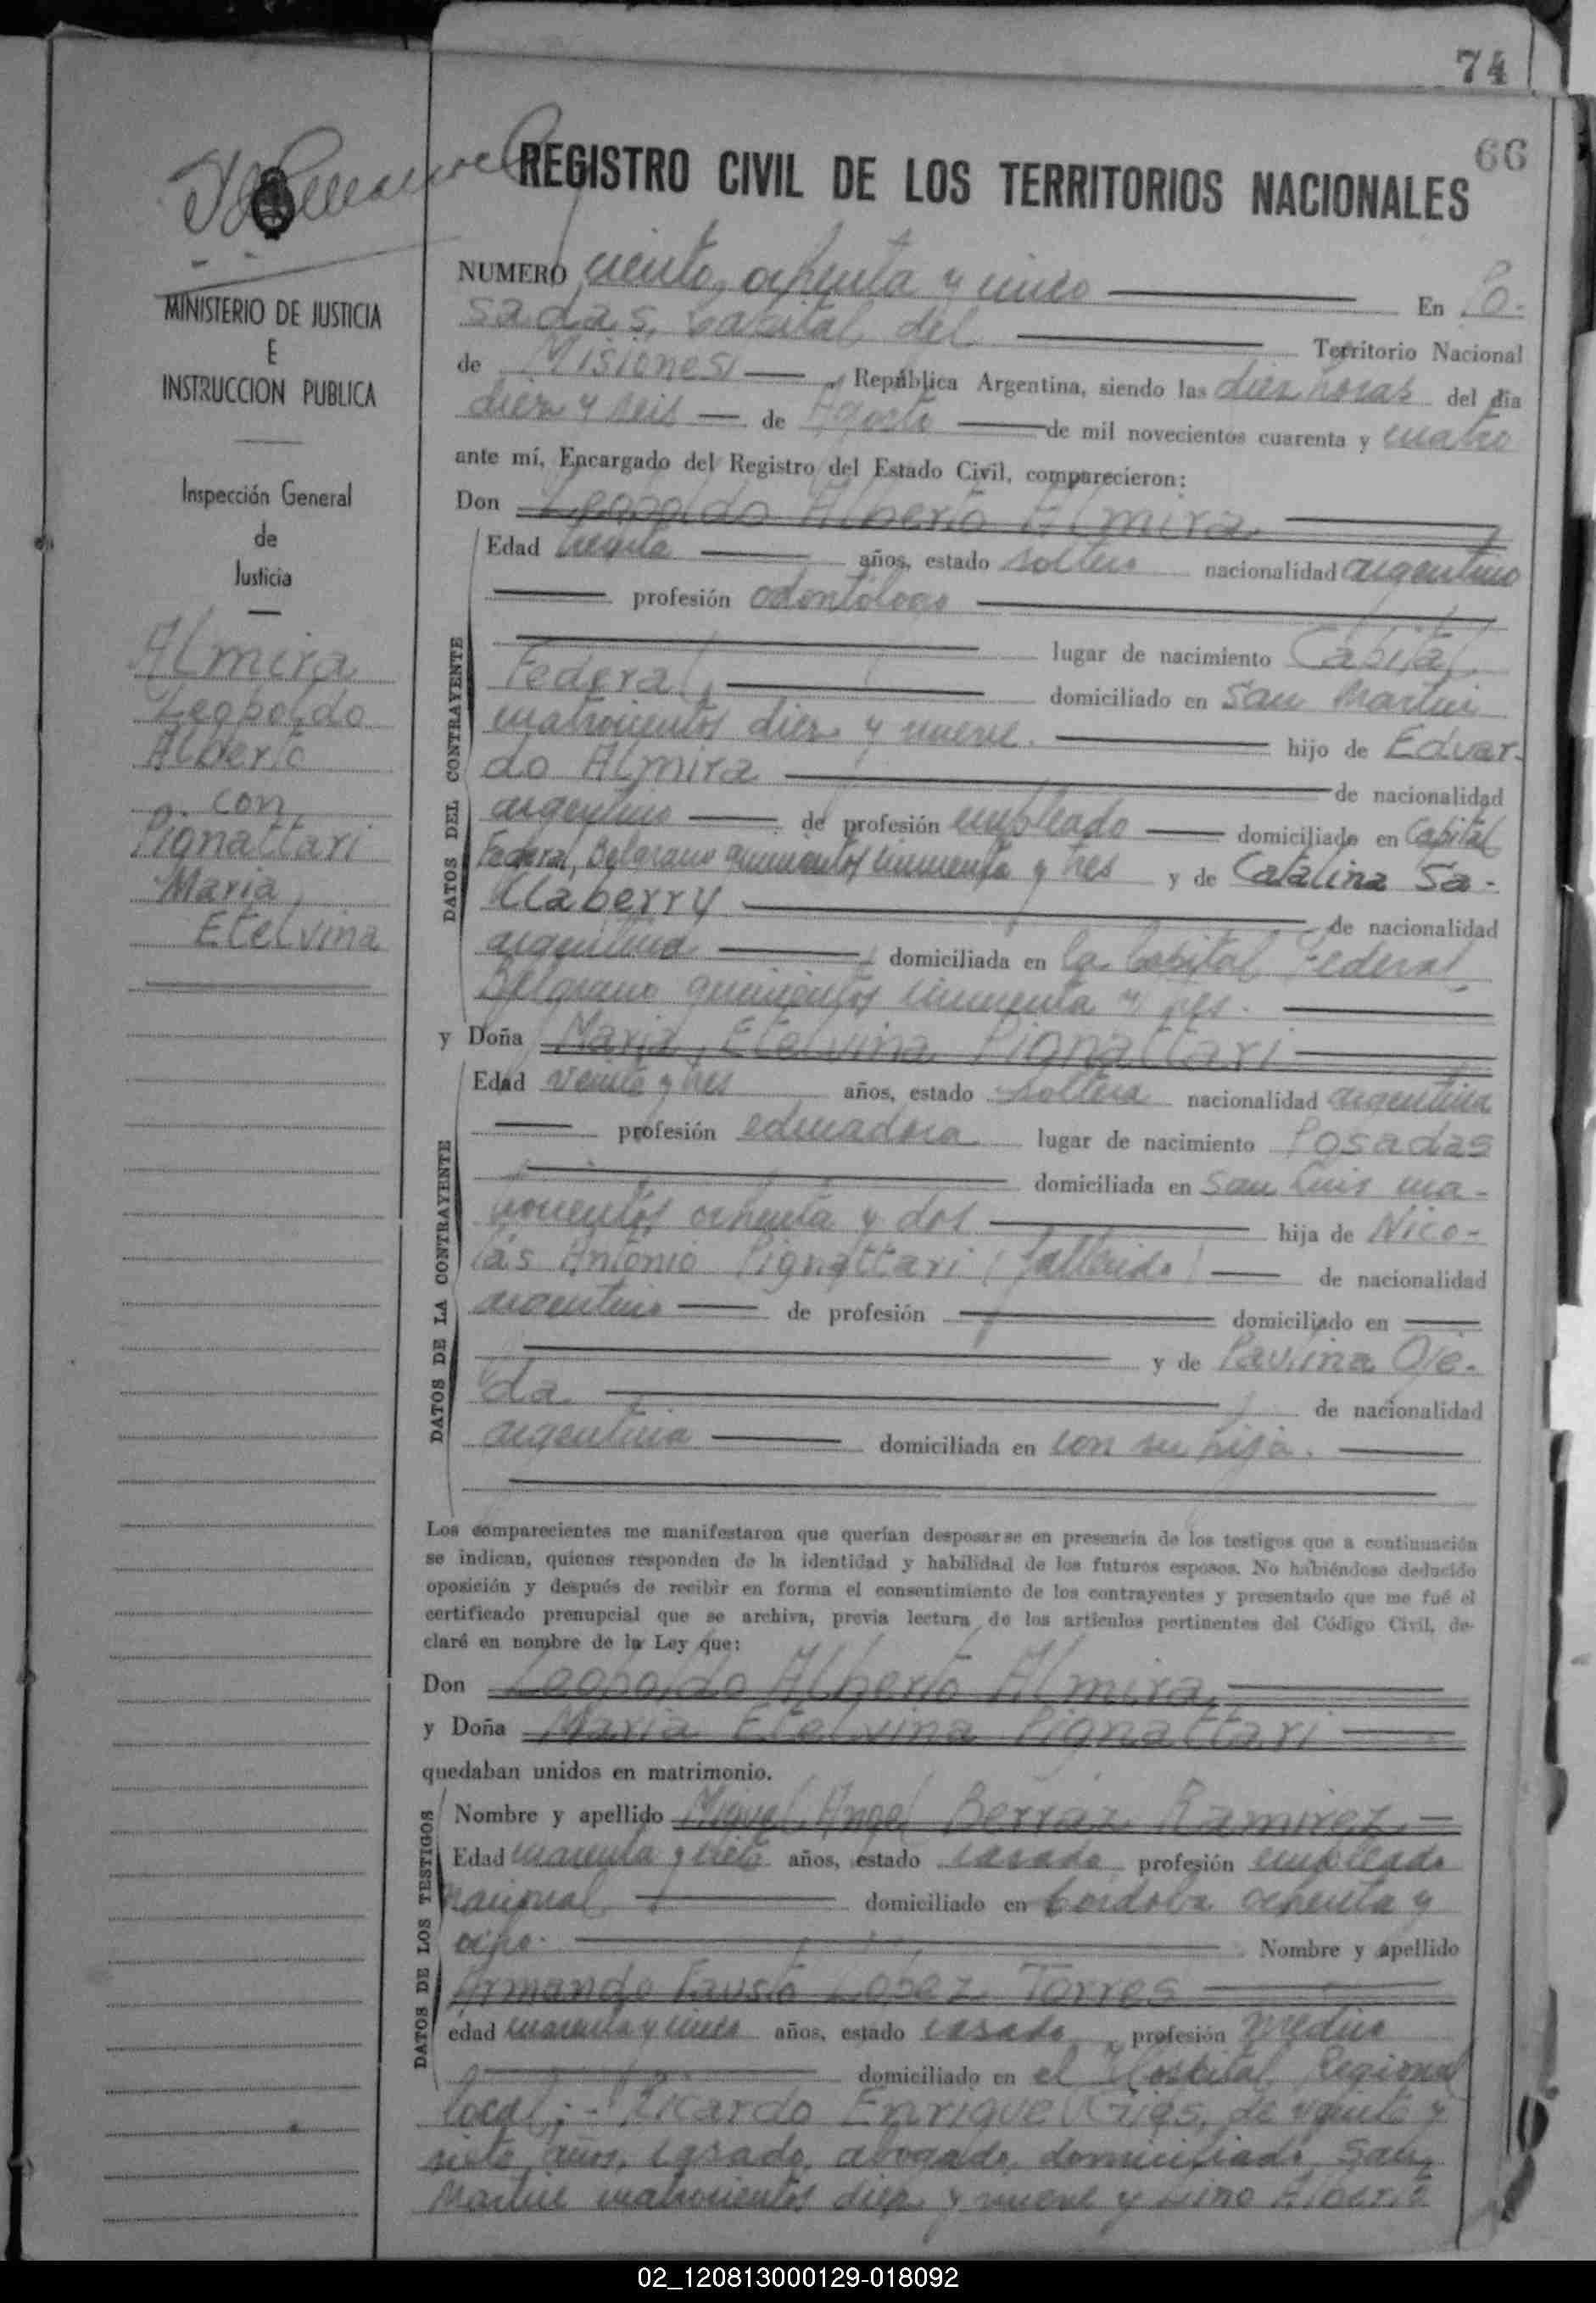 74
66
REGISTRO CIVIL DE LOS TERRITORIOS NACIONALES
MINISTERIO DE JUSTICIA
E
INSTRUCCION PUBLICA
Inspección General
de
Justicia
Almira
Leopoldo
Alberto
con
Pignattari
Maria
Etelvina
NUMERO ciento ochenta y cinco En Po-
sadas, Capital del Territorio Nacional
de Misiones, República Argentina, siendo las diez horas del día
diez y seis de Agosto de mil novecientos cuarenta y cuatro
ante mí, Encargado del Registro del Estado Civil, comparecieron:
Don Leopoldo Alberto Almira
DATOS DEL CONTRAYENTE
Edad treinta años, estado soltero nacionalidad argentino
profesión odontólogo
lugar de nacimiento Capital
Federal, domiciliado en San Martin
cuatrocientos diez y nueve. hijo de Eduar-
do Almira de nacionalidad
argentino de profesión empleado domiciliado en Capital
Federal, Belgrano quinientos cincuenta y tres y de Catalina Sa-
llaberry de nacionalidad
argentina domiciliada en la Capital Federal,
Belgrano quinientos cincuenta y tres.
y Doña Maria Etelvina Pignattari
DATOS DE LA CONTRAYENTE
Edad veinte y tres años, estado soltera nacionalidad argentina
profesión educadora lugar de nacimiento Posadas
domiciliada en San Luis cua-
trocientos ochenta y dos hija de Nico-
lás Antonio Pignattari (fallecido) de nacionalidad
argentino de profesión domiciliado en
y de Paulina Oje-
da de nacionalidad
argentina domiciliada en con su hija.
Los comparecientes me manifestaron que querían desposarse en presencia de los testigos que a continuación
se indican, quienes responden de la identidad y habilidad de los futuros esposos. No habiéndose deducido
oposición y después de recibir en forma el consentimiento de los contrayentes y presentado que me fué el
certificado prenupcial que se archiva, previa lectura de los artículos pertinentes del Código Civil, de-
claré en nombre de la Ley que:
Don Leopoldo Alberto Almira
y Doña Maria Etelvina Pignattari
quedaban unidos en matrimonio.
DATOS DE LOS TESTIGOS
Nombre y apellido Miguel Angel Berraz Ramirez
Edad cuarenta y siete años, estado casado profesión empleado
nacional domiciliado en Córdoba ochenta y
ocho. Nombre y apellido
Armando Fausto Lopez Torres
edad cuarenta y cinco años, estado casado profesión medico
domiciliado en el Hospital Regional
local;- Ricardo Enrique de veinte y
siete años, casado, abogado, domiciliado San
Martin cuatrocientos diez y nueve y Lino Alberto
02_120813000129-018092